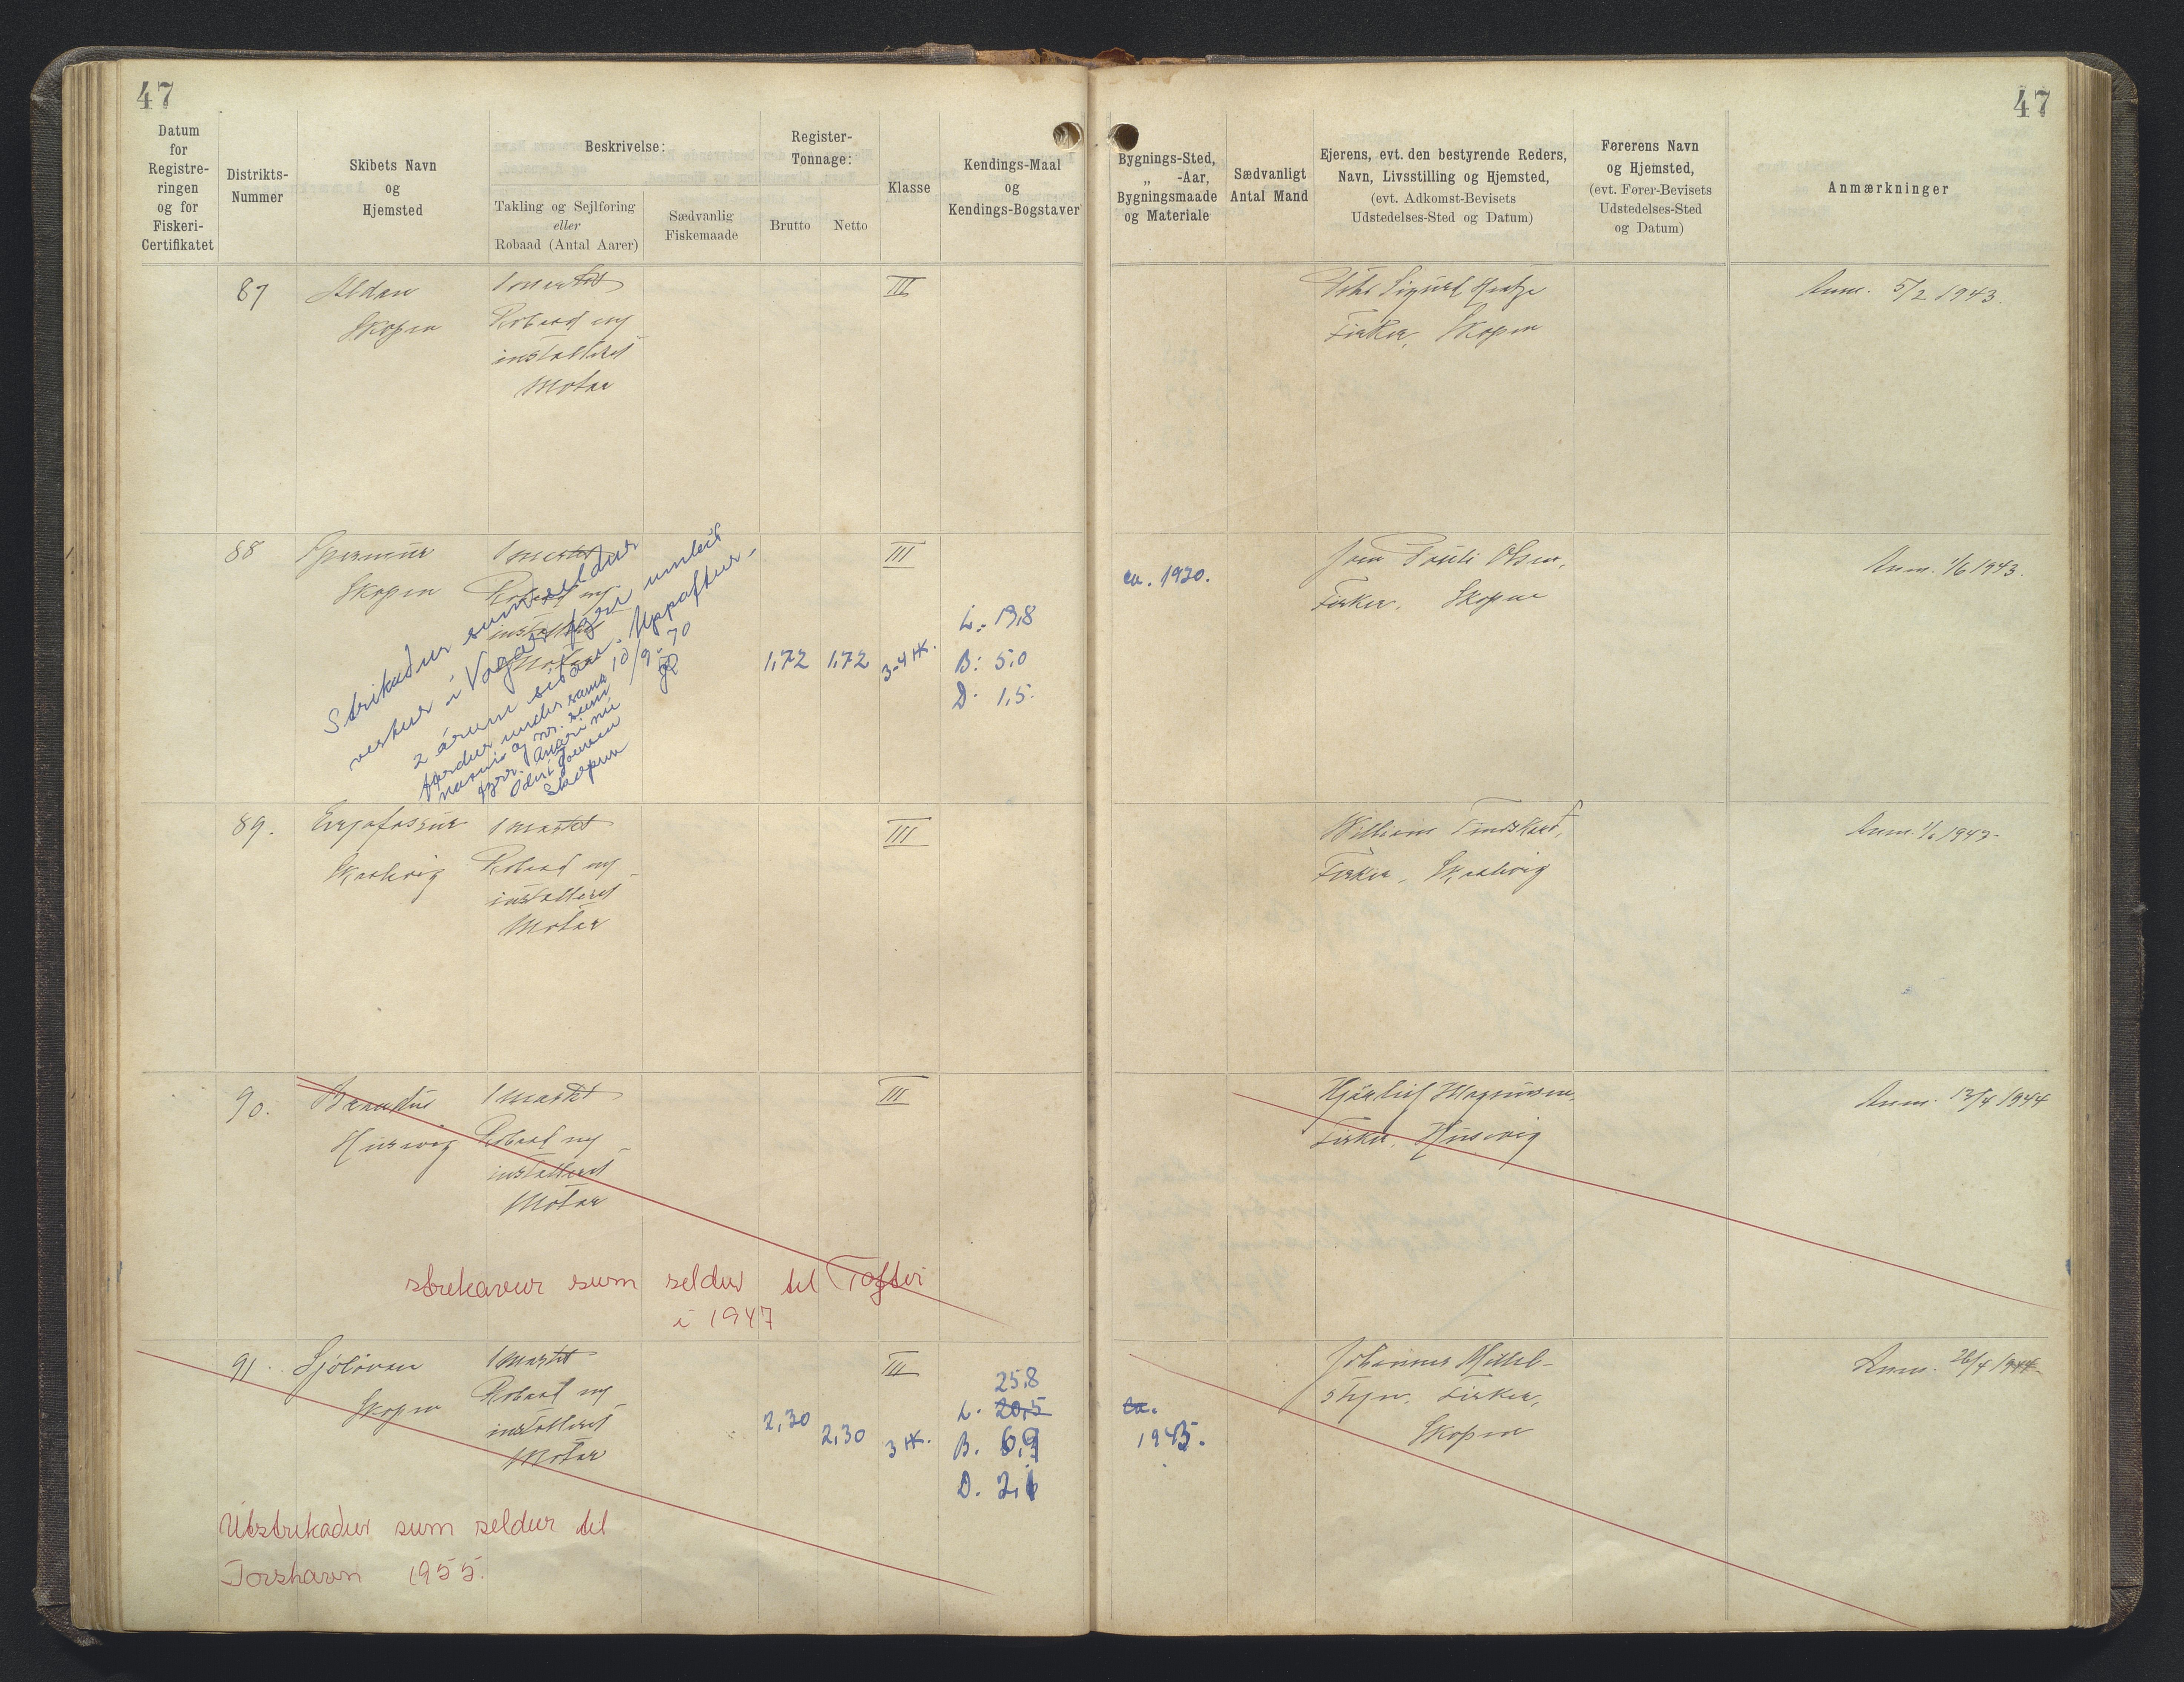 47
47
Datum
for
Registre-
ringen
og for
Fiskeri-
Certifikatet
Distrikts-
Nummer
Skibets Navn
og
Hjemsted
Beskrivelse:
Takling og Sejlføring
eller
Robaad (Antal Aarer)
Sædvanlig
Fiskemaade
Register-
Tonnage:
Brutto
Netto
Klasse
Kendings-Maal
og
Kendings-Bogstaver
Bygnings-Sted,
„ -Aar,
Bygningsmaade
og Materiale
Sædvanligt
Antal Mand
Ejerens, evt. den bestyrende Reders,
Navn, Livsstilling og Hjemsted,
(evt. Adkomst-Bevisets
Udstedelses-Sted og Datum)
Førerens Navn
og Hjemsted,
(evt. Fører-Bevisets
Udstedelses-Sted
og Datum)
Anmærkninger
87
Aldan
Skopen
1 mastet
Robaad m/
installeret
Motor
III
Sigurd Hentze
Fisker, Skopen
Anm. 5/2 1943.
88
Skopen
1 mastet
Robaad m/
installeret
Motor
Strikaður sum seldur
vestur í Vágar fyri umleið
2 árum síðan. Uppaftur
førdur undir sama 10/9-70
navni og nr. sum
fyrr. Eigari nú
Skopun
1,72
1,72
III
3-4 HK.
L: 19,8
B: 5,0
D. 1,5.
ca. 1920.
Joen Pauli Olsen,
Fisker, Skopen
Anm. 1/6 1943.
89.
Skaalevig
1 mastet
Robaad m/
installeret
Motor
III
William Tindskard,
Fisker, Skaalevig
Anm. 1/6 1943.
90.
Husevig
1 mastet
Robaad m/
installeret
Motor
III
Magnussen,
Fisker, Husevig
Anm. 12/4 1944
strikavur sum seldur til Toftir
i 1947
91.
Sjólívan
Skopen
1 mastet
Robaad m/
installeret
Motor
2,30
2,30
III
3 HK.
25,8
L. 20,5
B. 6,9
D. 2,1
ca.
1943.
Johannes Mittel-
stejn, Fisker,
Skopen
Anm. 26/4 1944
Útstrikaður sum seldur til
Torshavn 1955.